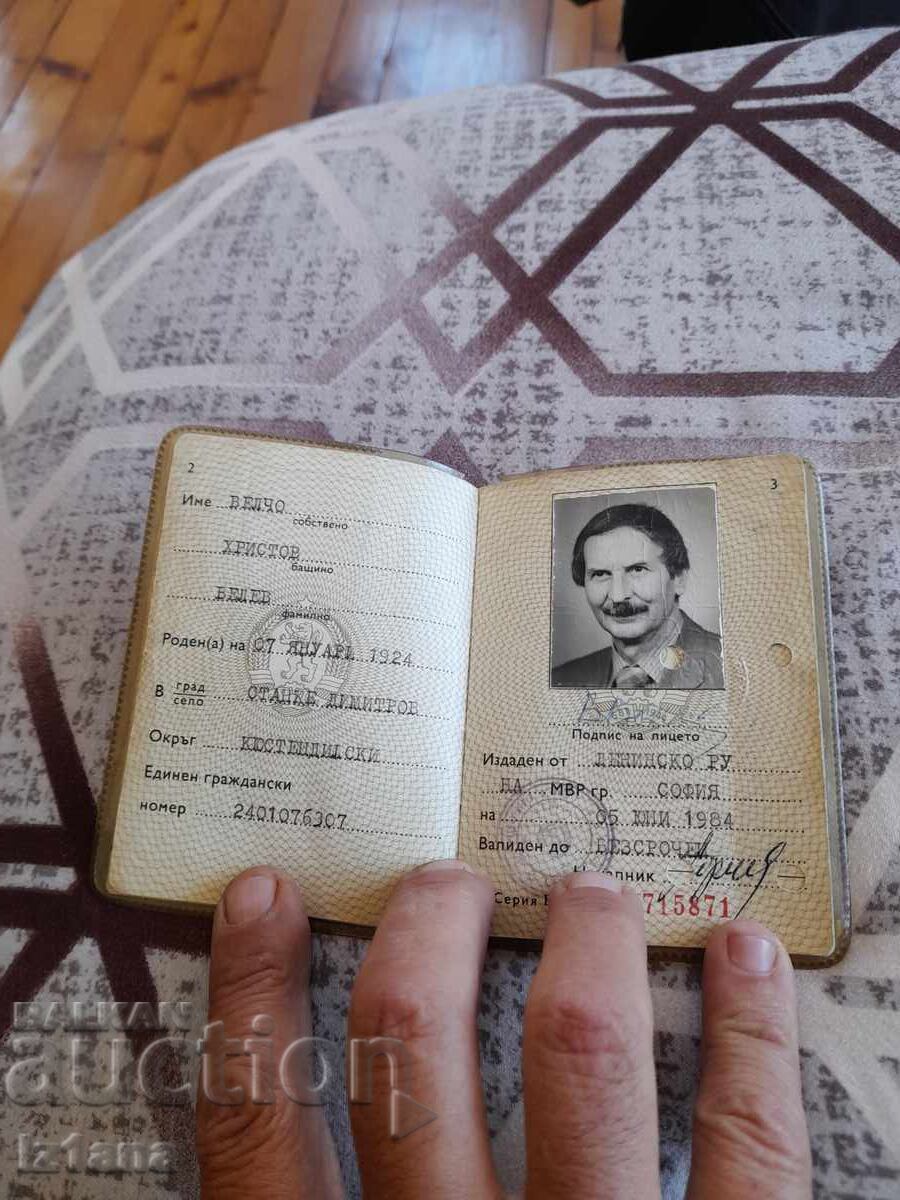 2
Име ВЕЛЧО
собствено
ХРИСТОВ
бащино
ВЕЛЕВ
фамилно
Роден(а) на 07 ЯНУАРИ 1924
В град
село
СТАНКЕ ДИМИТРОВ
Окръг КЮСТЕНДИЛСКИ
Единен граждански
номер 2401076307
3
Подпис на лицето
Издаден от ЛЕНИНСКО РУ
НА МВР гр. СОФИЯ
на 05 ЮНИ 1984
Валиден до БЕЗСРОЧЕН
Серия
715871
BALKAN
auction
Iz1ana